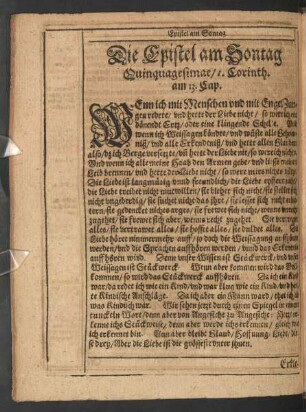 Epistel am Sontag
Die Epistel am Sontag
Quinquagesimae/ 1. Corinth.
am 13. Cap.
WEnn ich mit Menschen vnd mit Engel Zun-
gen redete/ vnd hette der Liebe nicht/ so were ich ein
dönende Ertz/ oder eine klingende Schelle. Vnd
wenn ich Weissagen köndte/ vnd wüste alle Geheim-
niß/ vnd alle Erkendtniß/ vnd hette allen Glauben/
also/ daß ich Berge versetzte/ vnd hette der Liebe nit/ so were ich nichts.
Vnd wenn ich alle meine Haab den Armen gebe/ vnd ließ meinen
Leib brennen/ vnd hette der Liebe nicht/ so were mirs nichts nütze.
Die Liebe ist langmütig vnnd freundlich/ die Liebe eyfert nicht/
die Liebe treibet nicht mutwillen/ sie blehet sich nicht/ sie stellet sich
nicht vngeberdig/ sie suchet nicht das ihre/ sie lesset sich nicht erbit-
tern/ sie gedencket nichts arges/ sie frewet sich nicht/ wenns vnrecht
zugehet/ sie frewet sich aber/ wenns recht zugehet. Sie vertregt
alles/ sie vertrawet alles/ sie hoffet alles/ sie duldet alles. Die
Liebe höret nimmermehr auff/ so doch die Weissagung auffhören
werden/ vnd die Sprachen auffhören werden/ vnnd das Erkentniß
auffhören wird. Denn vnser Wissen ist Stückwerck/ vnd vnser
Weissagen ist Stückwerck. Wenn aber kommen wird das Vol-
kommen/ so wird das Stückwerck auffhören. Da ich ein Kind
war/ da redet ich wie ein Kind/ vnd war klug wie ein Kind/ vnd hat-
te Kindische Anschläge. Da ich aber ein Mann ward/ that ich ab
was Kindisch war. Wir sehen jetzt durch einen Spiegel in einem
tunckeln Wort/ denn aber von Angesicht zu Angesicht. Jetzt er-
kenne ichs Stückweise/ denn aber werde ichs erkennen/ gleich wie
ich erkennet bin. Nun aber bleibt Glaub/ Hoffnung/ Liebe/ die-
se drey/ Aber die Liebe ist die grösseste vnter jhnen.